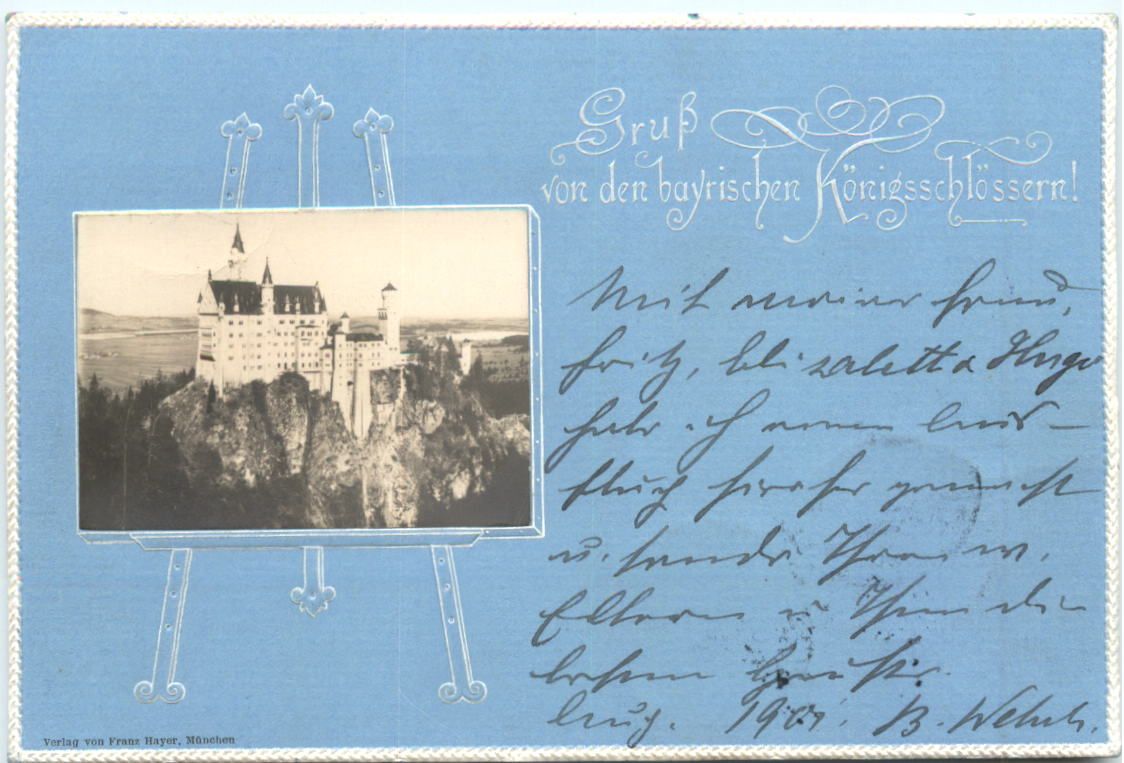 Gruß
von den bayrischen Königsschlössern!
Mit meiner
Fritz, Elisabetta Hugo
habe ich einen Aus-
flug hierher gemacht
u. sende Ihren w.
Eltern u Ihnen die
besten Grüße.
Aug. B.
Verlag von Franz Hayer, München